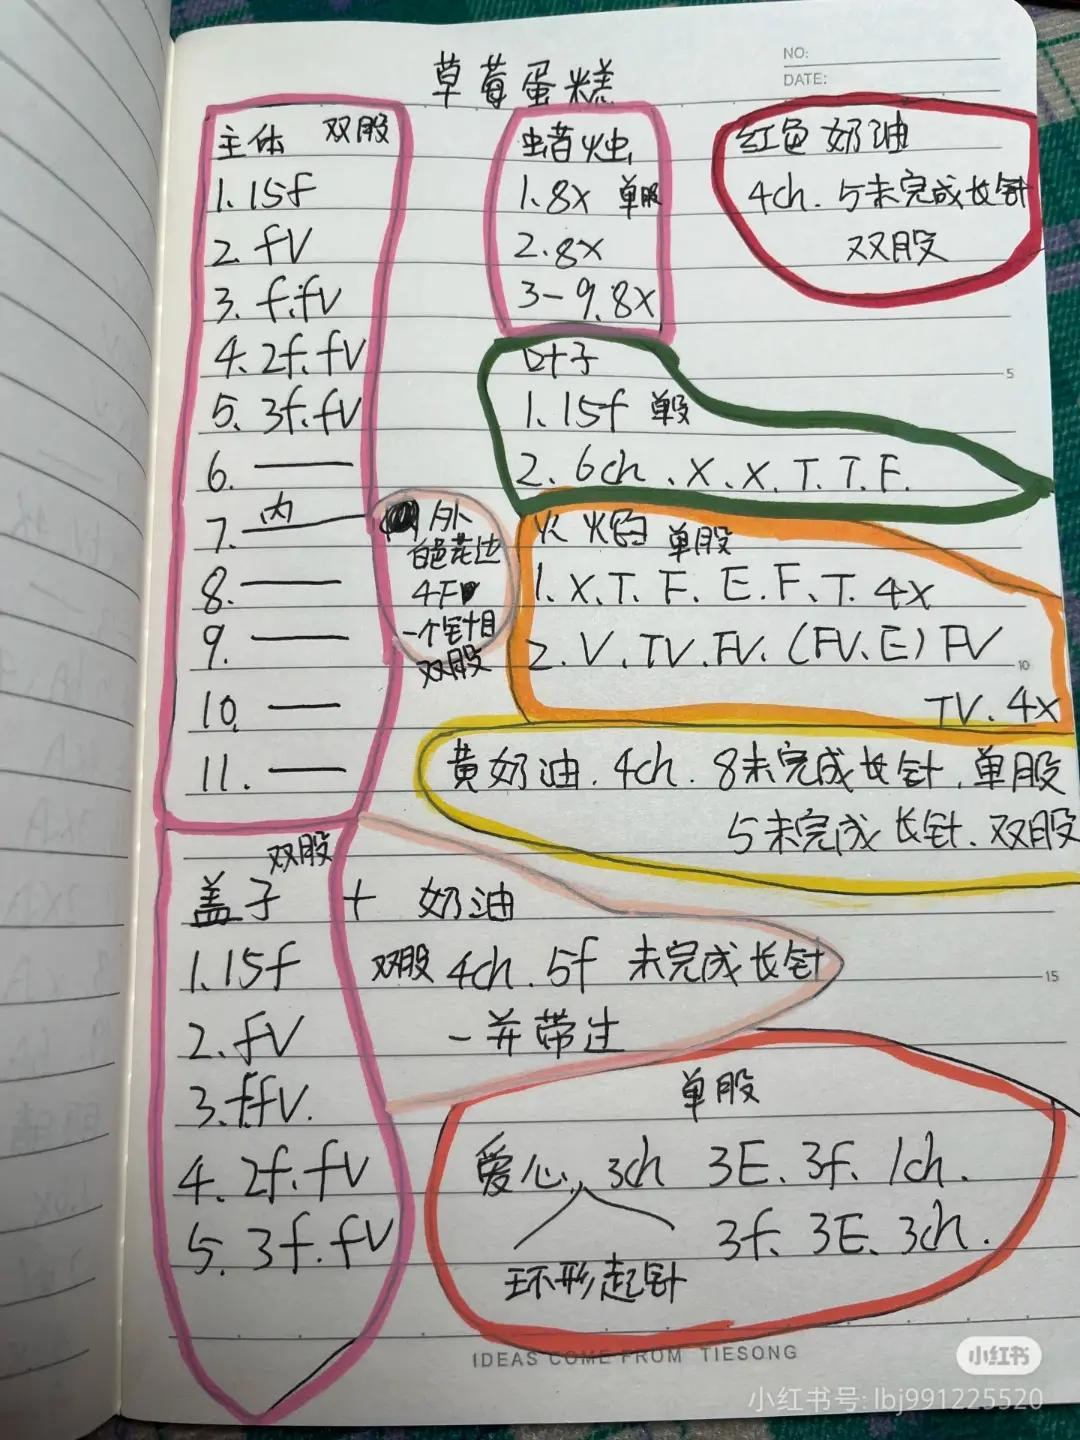 NO:
DATE:
草莓蛋糕
主体 双股
1.15f
2. fV
3. f.fV
4. 2f.fV
5. 3f.fV
6. ——
7. 内 ——
8. ——
9. ——
10. ——
11. ——
外
白色花边
4F
一个针目
双股
蜡烛
1.8x 单股
2.8x
3-9.8x
红色奶油
4ch. 5未完成长针
双股
叶子
1.15f 单股
2. 6ch. X. X. T. T. F.
火焰 单股
1. X. T. F. E. F. T. 4x
2. V. TV. FV. (FV. E) FV
TV. 4x
黄奶油. 4ch. 8未完成长针. 单股
5未完成长针. 双股
双股
盖子 + 奶油
1.15f
2. fV
3. f.fV.
4. 2f. fV
5. 3f. fV
双股 4ch. 5f 未完成长针
一并带过
单股
爱心. 3ch 3E. 3f. 1ch.
3f. 3E. 3ch.
环形起针
5
10
15
IDEAS COME FROM TIESONG
小红书
小红书号: lbj991225520